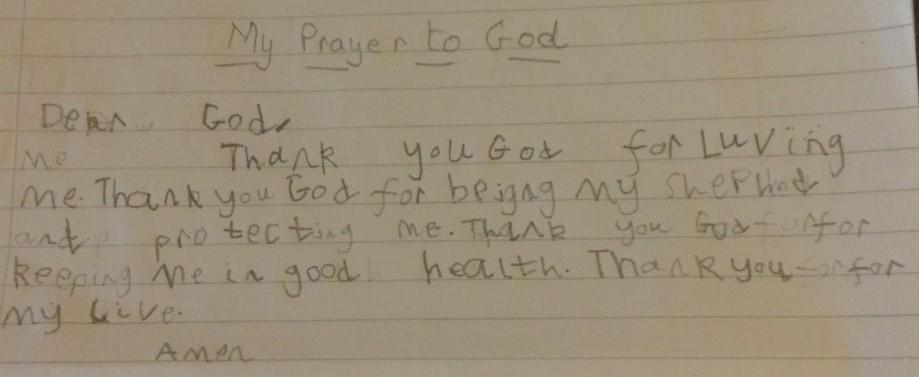 My Prayer to God
Dear God,
me Thank you God for Luving
me. Thank you God for beigng my Shephod
and protecting me. Thank you God for
keeping me in good health. Thank you for
my Live.
Amen